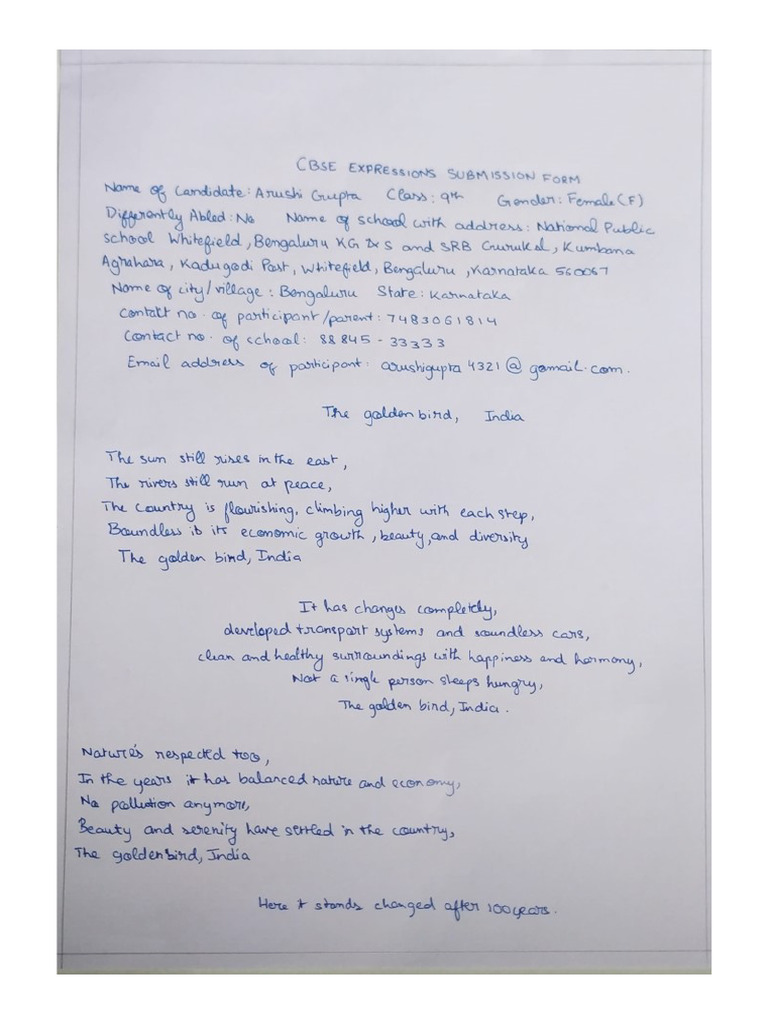 CBSE EXPRESSIONS SUBMISSION FORM
Name of Candidate: Arushi Gupta Class: 9th Gender: Female (F)
Differently Abled: No Name of school with address: National Public
school Whitefield, Bengaluru KG and SRB Gurukul, Kumbena
Agrahara, Kadugodi Post, Whitefield, Bengaluru, Karnataka 560067
Name of city/village: Bengaluru State: Karnataka
Contatt no. of participant/parent: 7483061814
Contact no. of school: 88845-33333
Email address of participant: arushigupta4321@gamail.com.
The golden bird, India
The sun still rises in the east,
The rivers still run at peace,
The country is flourishing, climbing higher with each step,
Boundless is its economic growth, beauty, and diversity
The golden bird, India
It has changes completely,
developed transport systems and soundless cars,
clean and healthy surroundings with happiness and harmony,
Not a single person sleeps hungry,
The golden bird, India.
Nature's respected too,
In the years it has balanced nature and economy,
No pollution anymore,
Beauty and serenity have settled in the country,
The golden bird, India
Here it stands changed after 100 years.